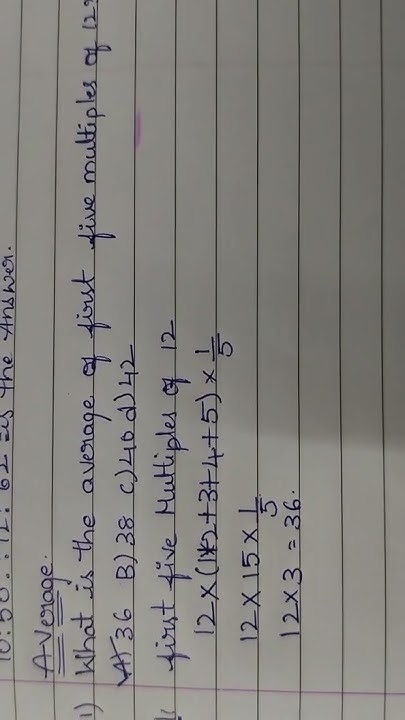 10:50 :: 12:62 is the Answer.
Average.
1) What is the average of first five multiples of 12?
A) 36 B) 38 c) 40 d) 42
first five Multiples of 12
12 × (1+2+3+4+5) × 1/5
12 × 15 × 1/5
12 × 3 = 36.